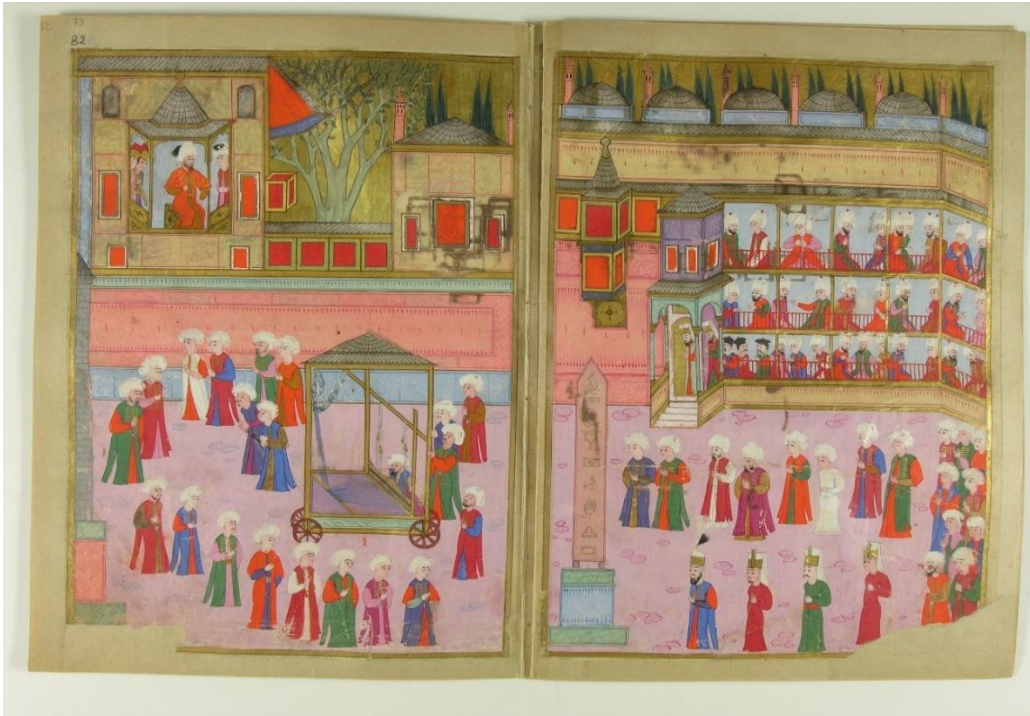 79
82